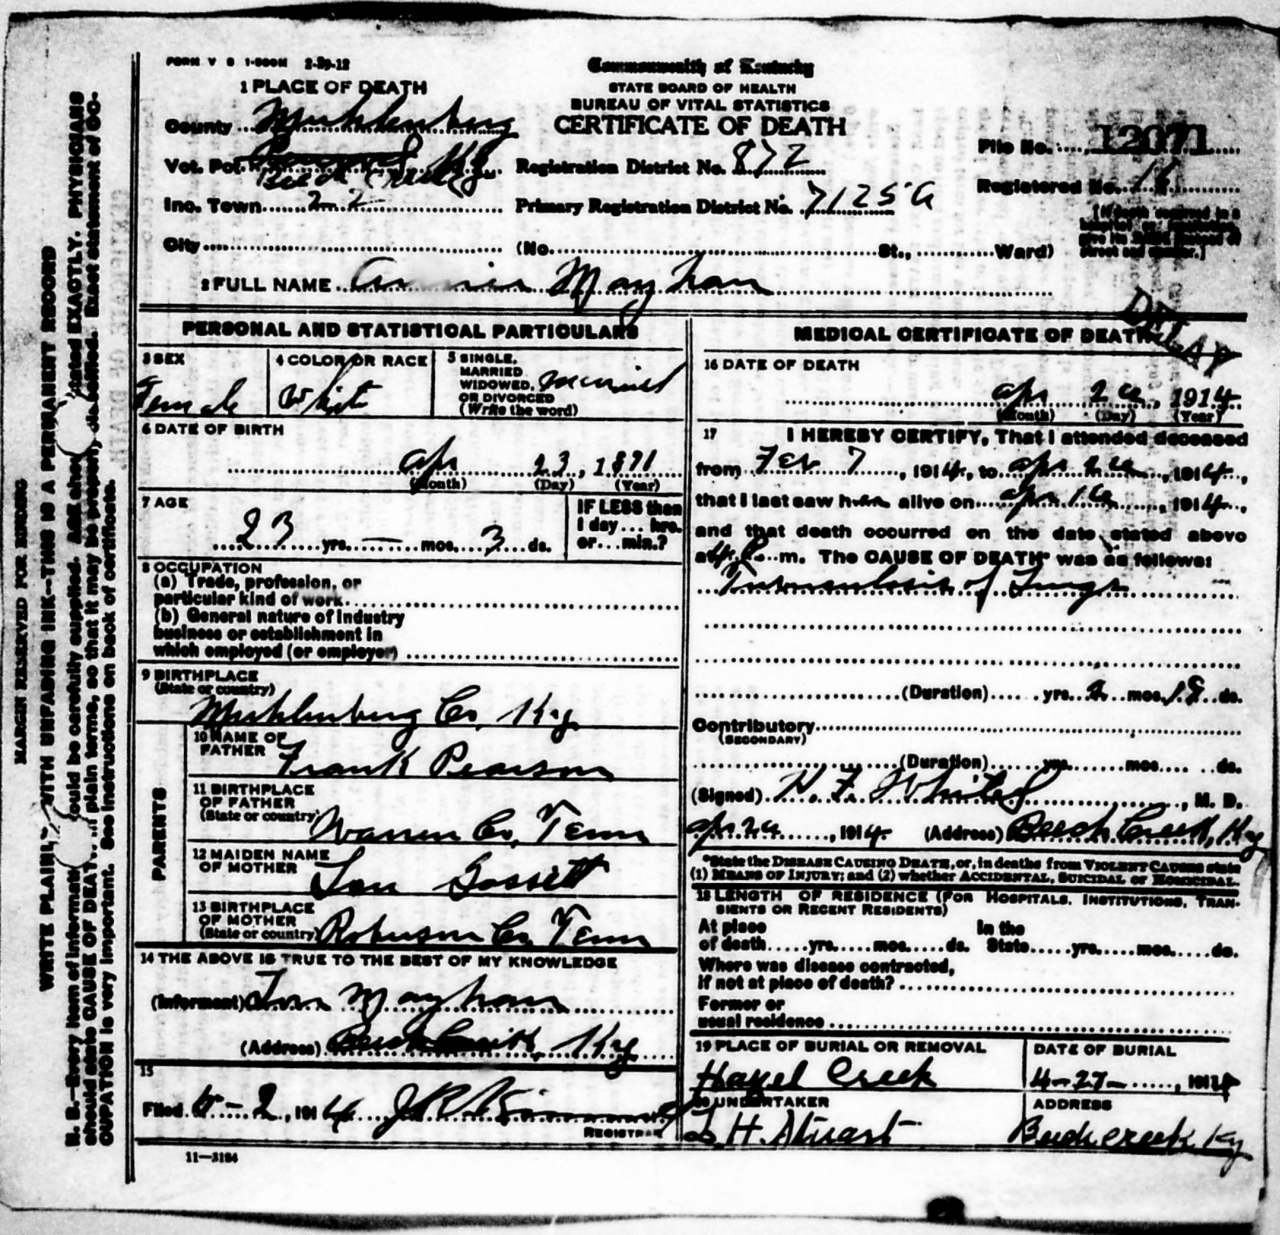 FORM V S 1-500M 2-29-12
1 PLACE OF DEATH
County Muhlenberg
Vot. Pct. Beech Creek Ky
Inc. Town 22
City
Commonwealth of Kentucky
STATE BOARD OF HEALTH
BUREAU OF VITAL STATISTICS
CERTIFICATE OF DEATH
Registration District No. 872
Primary Registration District No. 7125 a
(No. St., Ward)
File No. 12071
Registered No. 16
[If death occurred in a
hospital or institution,
give its NAME instead of
street and number.]
2 FULL NAME Mayhan
DELAY
PERSONAL AND STATISTICAL PARTICULARS
3 SEX
Female
4 COLOR OR RACE
White
5 SINGLE,
MARRIED
WIDOWED,
OR DIVORCED
(Write the word)
married
6 DATE OF BIRTH
Apr 23, 1871
(Month) (Day) (Year)
7 AGE
23 yrs. — mos. 3 ds.
IF LESS than
1 day ... hrs.
or ... min.?
8 OCCUPATION
(a) Trade, profession, or
particular kind of work
(b) General nature of industry
business or establishment in
which employed (or employer)
9 BIRTHPLACE
(State or country)
Muhlenberg Co. Ky
PARENTS
10 NAME OF
FATHER
Frank Pearson
11 BIRTHPLACE
OF FATHER
(State or country)
Warren Co, Tenn
12 MAIDEN NAME
OF MOTHER
Gossett
13 BIRTHPLACE
OF MOTHER
(State or country)
Robinson Co Tenn
14 THE ABOVE IS TRUE TO THE BEST OF MY KNOWLEDGE
(Informant) Mayhan
(Address) Beech Creek Ky
15
Filed 2, 1914 J R
REGISTRAR
11—3184
MEDICAL CERTIFICATE OF DEATH
16 DATE OF DEATH
Apr 26, 1914
(Month) (Day) (Year)
17 I HEREBY CERTIFY, That I attended deceased
from Feb 7, 1914, to Apr 26, 1914,
that I last saw her alive on Apr 16, 1914,
and that death occurred on the date stated above
at m. The CAUSE OF DEATH* was as follows:
Tuberculosis of Lungs
(Duration) yrs. 2 mos. 18 ds.
Contributory
(SECONDARY)
(Duration) yrs. mos. ds.
(Signed) , M. D.
Apr 26, 1914 (Address) Beech Creek, Ky
*State the DISEASE CAUSING DEATH, or, in deaths from VIOLENT CAUSES state
(1) MEANS OF INJURY; and (2) whether ACCIDENTAL, SUICIDAL or HOMICIDAL.
18 LENGTH OF RESIDENCE (FOR HOSPITALS, INSTITUTIONS, TRAN-
SIENTS OR RECENT RESIDENTS)
At place In the
of death yrs. mos. ds. State yrs. mos. ds.
Where was disease contracted,
If not at place of death?
Former or
usual residence
19 PLACE OF BURIAL OR REMOVAL
Hazel Creek
DATE OF BURIAL
4-27-, 1914
20 UNDERTAKER
H. Stuart
ADDRESS
Beech Creek Ky
MARGIN RESERVED FOR BINDING
WRITE PLAINLY, WITH UNFADING INK—THIS IS A PERMANENT RECORD
N. B.—Every item of information should be carefully supplied. AGE should be stated EXACTLY. PHYSICIANS
should state CAUSE OF DEATH in plain terms, so that it may be properly classified. Exact statement of OC-
CUPATION is very important. See instructions on back of certificate.